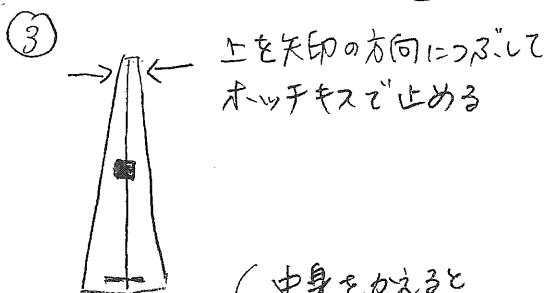 ③
上を矢印の方向につぶして
ホッチキスで止める
(中身をかえると